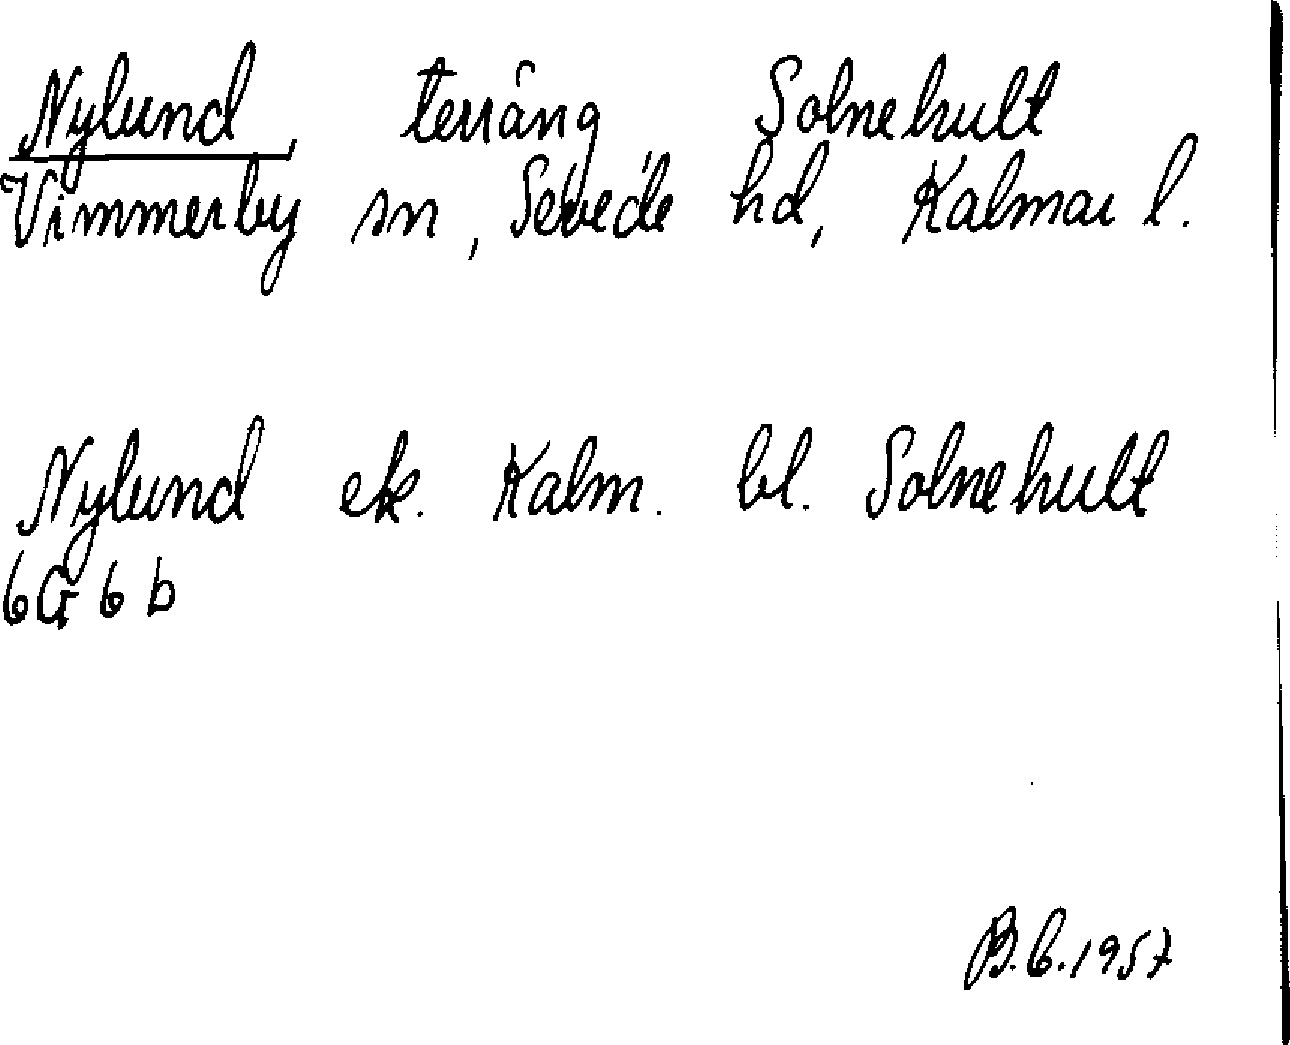 Nylund, terräng Solnehult
Vimmerby sn, Sevede hd, Kalmar l.
Nylund ek. Kalm. bl. Solnehult
6G 6 b
B.G.1957